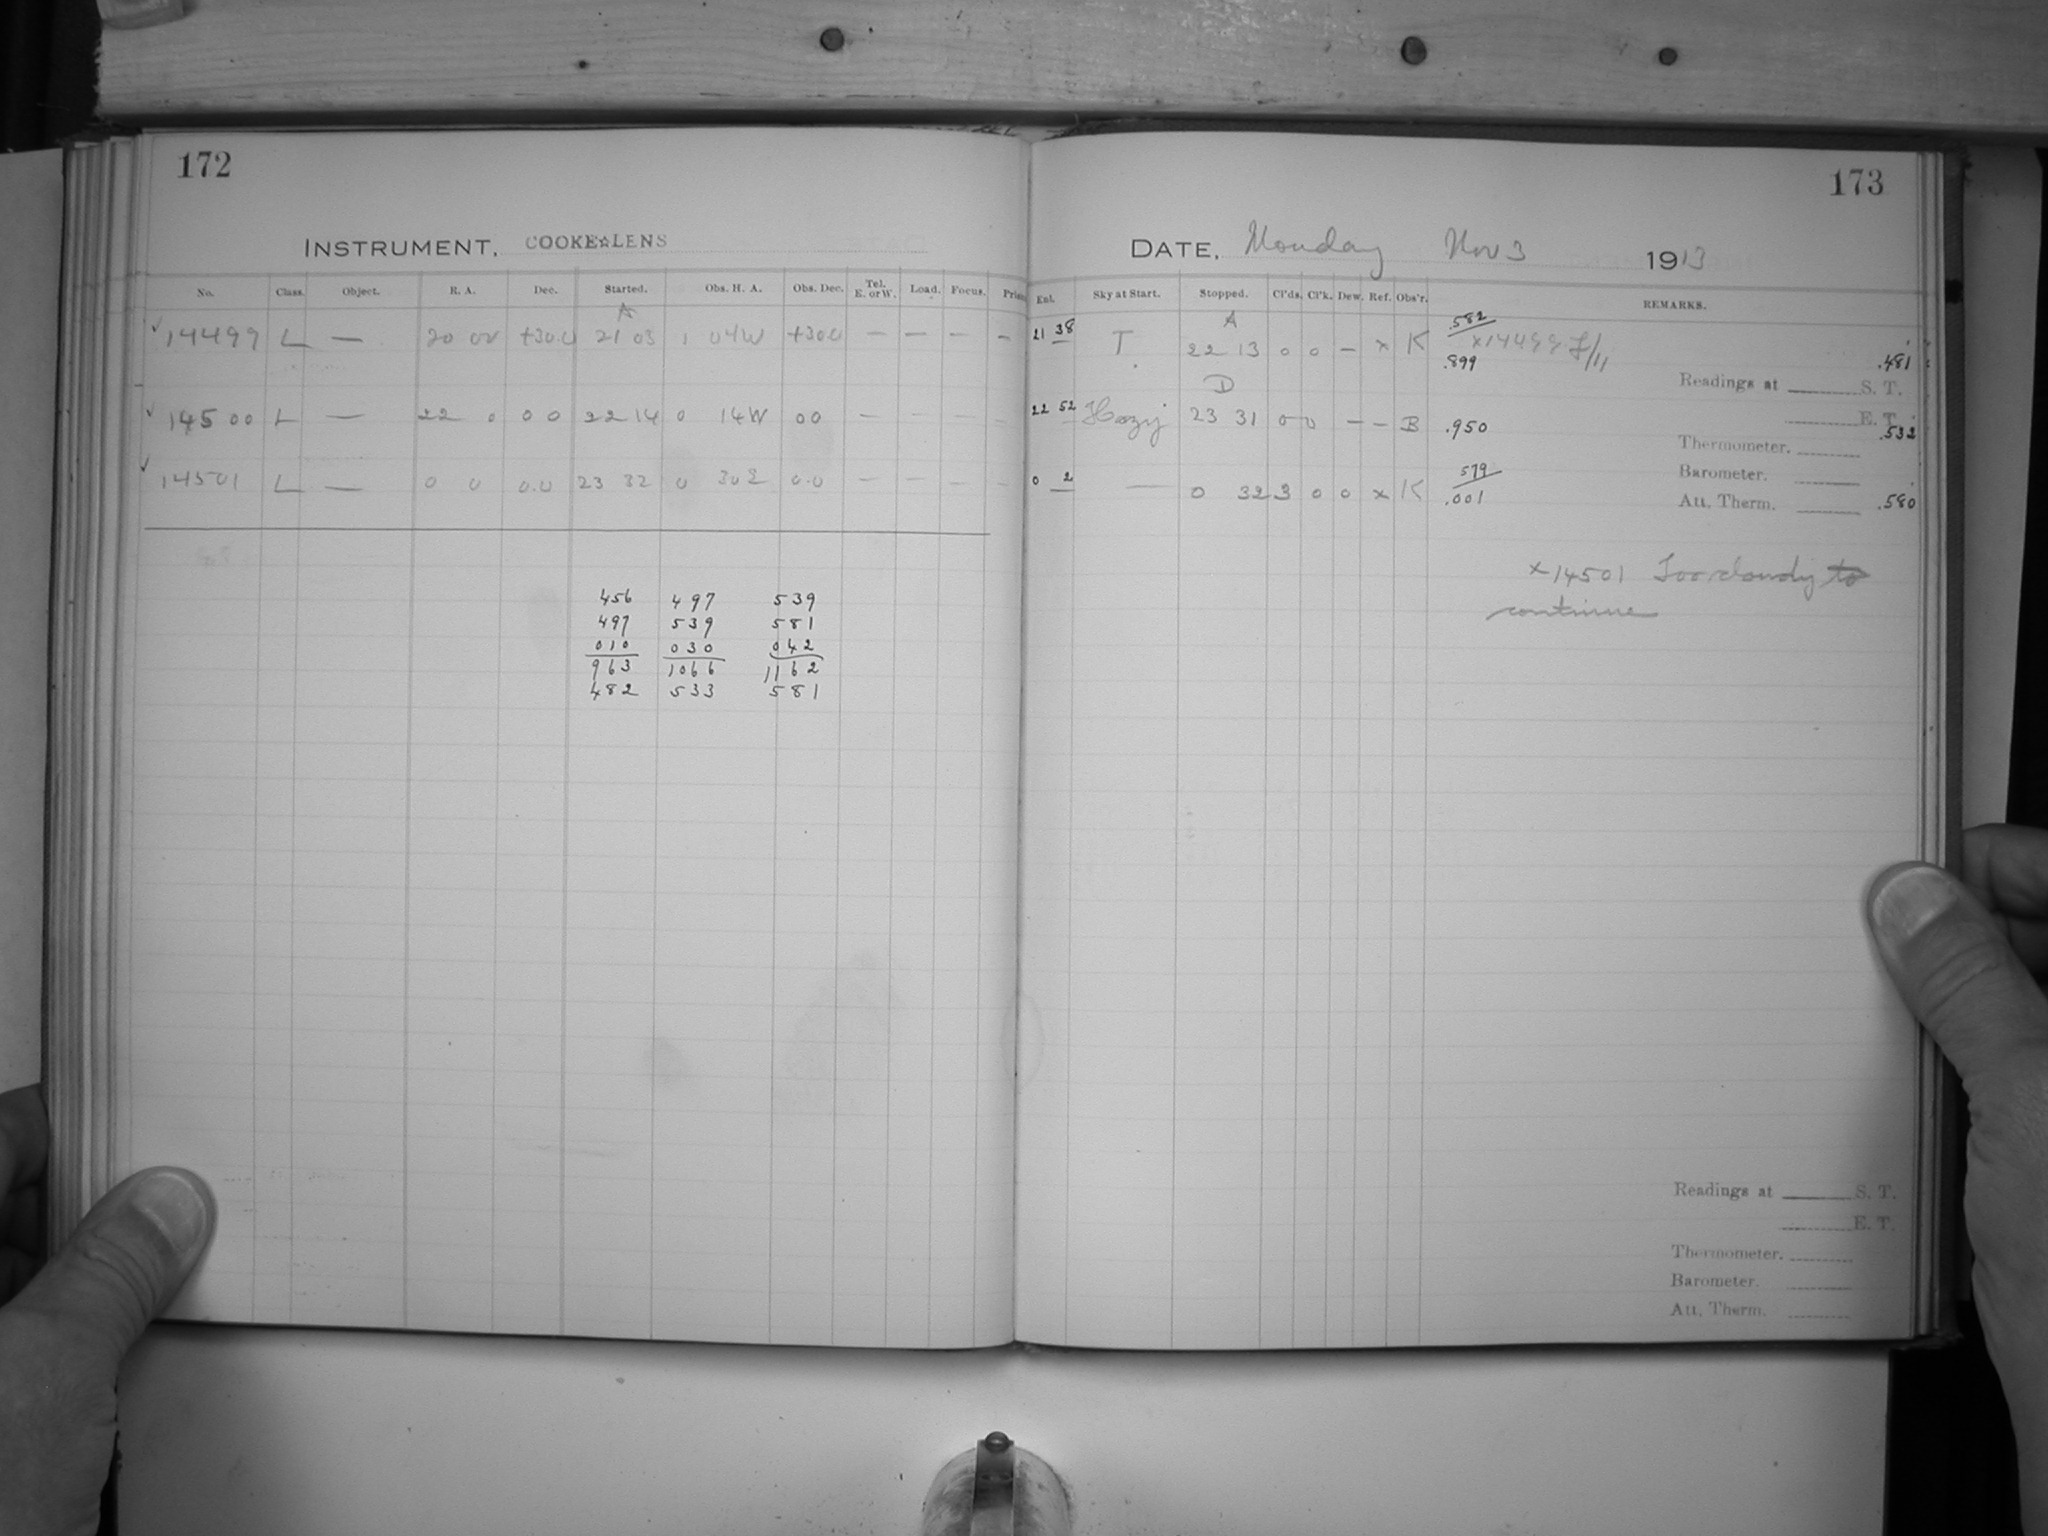 172
INSTRUMENT, COOKE☆LENS
No. Class. Object. R. A. Dec. Started. Obs. H. A. Obs. Dec. Tel. E. or W. Load. Focus.
A
✓ 14499 L — 20 00 +30.0 21 03 1 04W +30.0 — — — —
✓ 14500 L — 22 0 0 0 22 14 0 14W 00 — — — —
✓ 14501 L — 0 0 0.0 23 32 0 30E 0.0 — — — —
456 497 539
497 539 581
010 030 042
963 1066 1162
482 533 581
173
DATE, Monday Nov 3 1913
Ent. Sky at Start. Stopped. Cl'ds. Cl'k. Dew. Ref. Obs'r. REMARKS.
A
21 38 T 22 13 0 0 — x K .582 x14499 f/11
.899 .481
Readings at S. T.
D
22 52 Hazy 23 31 0 0 — — B .950
E. T.
.532
Thermometer.
Barometer.
0 2 — 0 32 3 0 0 x K 579
.001
Att. Therm. .580
x14501 Too cloudy to
continue
Readings at S. T.
E. T.
Thermometer.
Barometer.
Att. Therm.